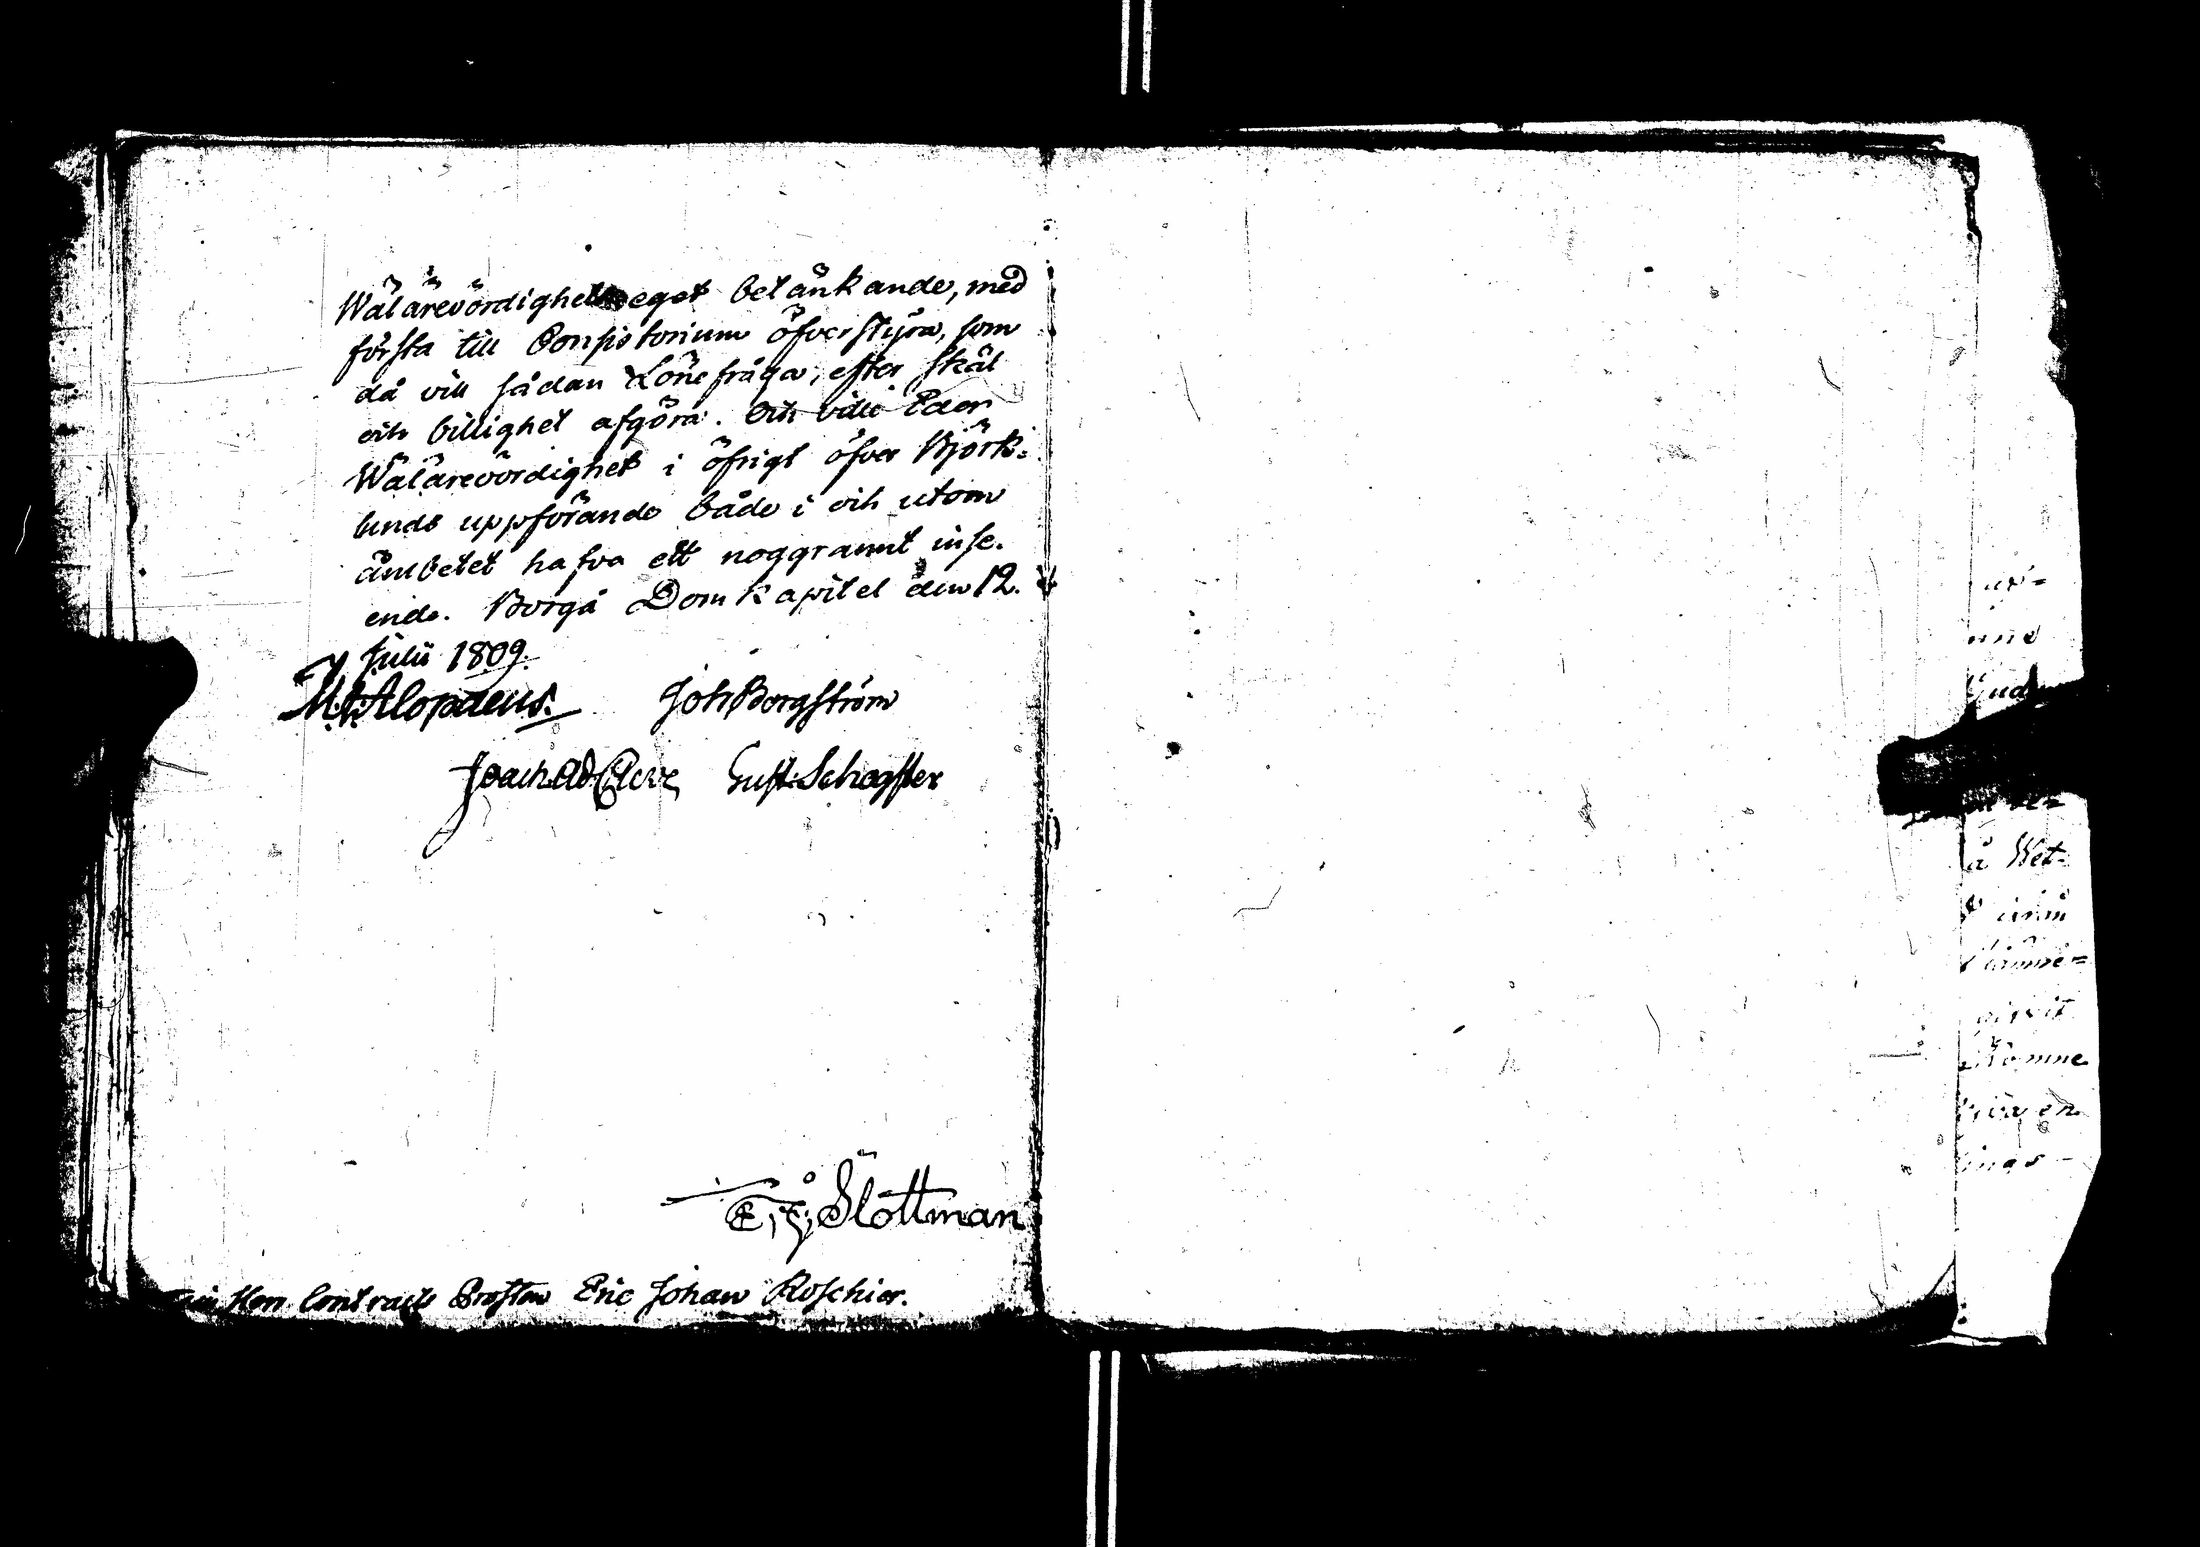 Wälärevördighets eget betänkande, med
första till Consistorium öfverstyra, som
då vill sådan Lönefråga, efter skäl
och billighet afgöra. Och ville Eder
Wälärevördighet i öfrigt öfver Björk-
lunds uppförande både i och utom
ämbetet hafva ett noggrannt inse-
ende. Borgå Domkapitel den 12.
Julii 1809.
M. J. Alopaeus. Joh Borgström
Joach. Ad Gust. Schogster
E. J. Slottman
Herr Contracts Prosten Eric Johan Roschier.
å Wet-